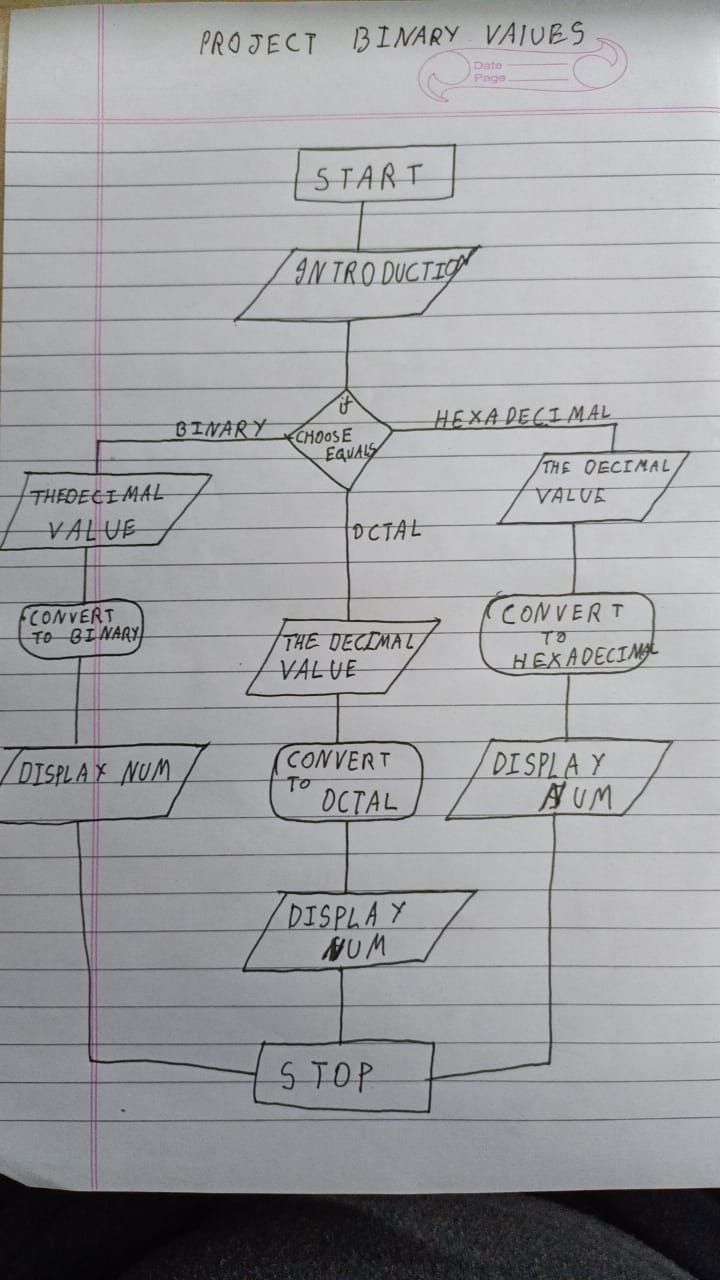 PROJECT BINARY VALUES
Date
Page
START
INTRODUCTION
if
CHOOSE
EQUALS
BINARY
HEXADECIMAL
OCTAL
THE DECIMAL
VALUE
CONVERT
TO BINARY
DISPLAY NUM
THE DECIMAL
VALUE
CONVERT
TO
OCTAL
DISPLAY
NUM
THE DECIMAL
VALUE
CONVERT
TO
HEXADECIMAL
DISPLAY
NUM
STOP